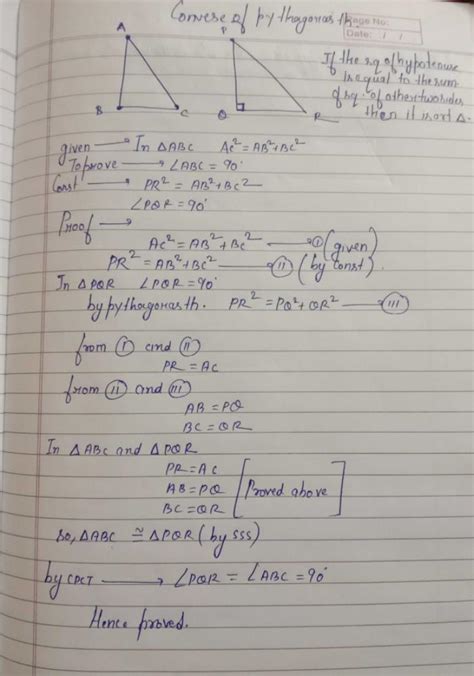 Converse of pythagoras th.
Page No:
Date: / /
A
B
C
P
Q
R
If the sq of hypotenuse
is equal to the sum
of sq of other two sides
then it is a rt Δ.
given → In ΔABC AC² = AB² + BC²
To prove → ∠ABC = 90°
Const → PR² = AB² + BC²
∠PQR = 90°
Proof →
AC² = AB² + BC² — (I) (given)
PR² = AB² + BC² — (II) (by const).
In ΔPQR ∠PQR = 90°
by pythagoras th. PR² = PQ² + QR² — (III)
from (I) and (II)
PR = AC
from (II) and (III)
AB = PQ
BC = QR
In ΔABC and ΔPQR
PR = AC
AB = PQ [Proved above]
BC = QR
so, ΔABC ≅ ΔPQR (by SSS)
by CPCT → ∠PQR = ∠ABC = 90°
Hence proved.